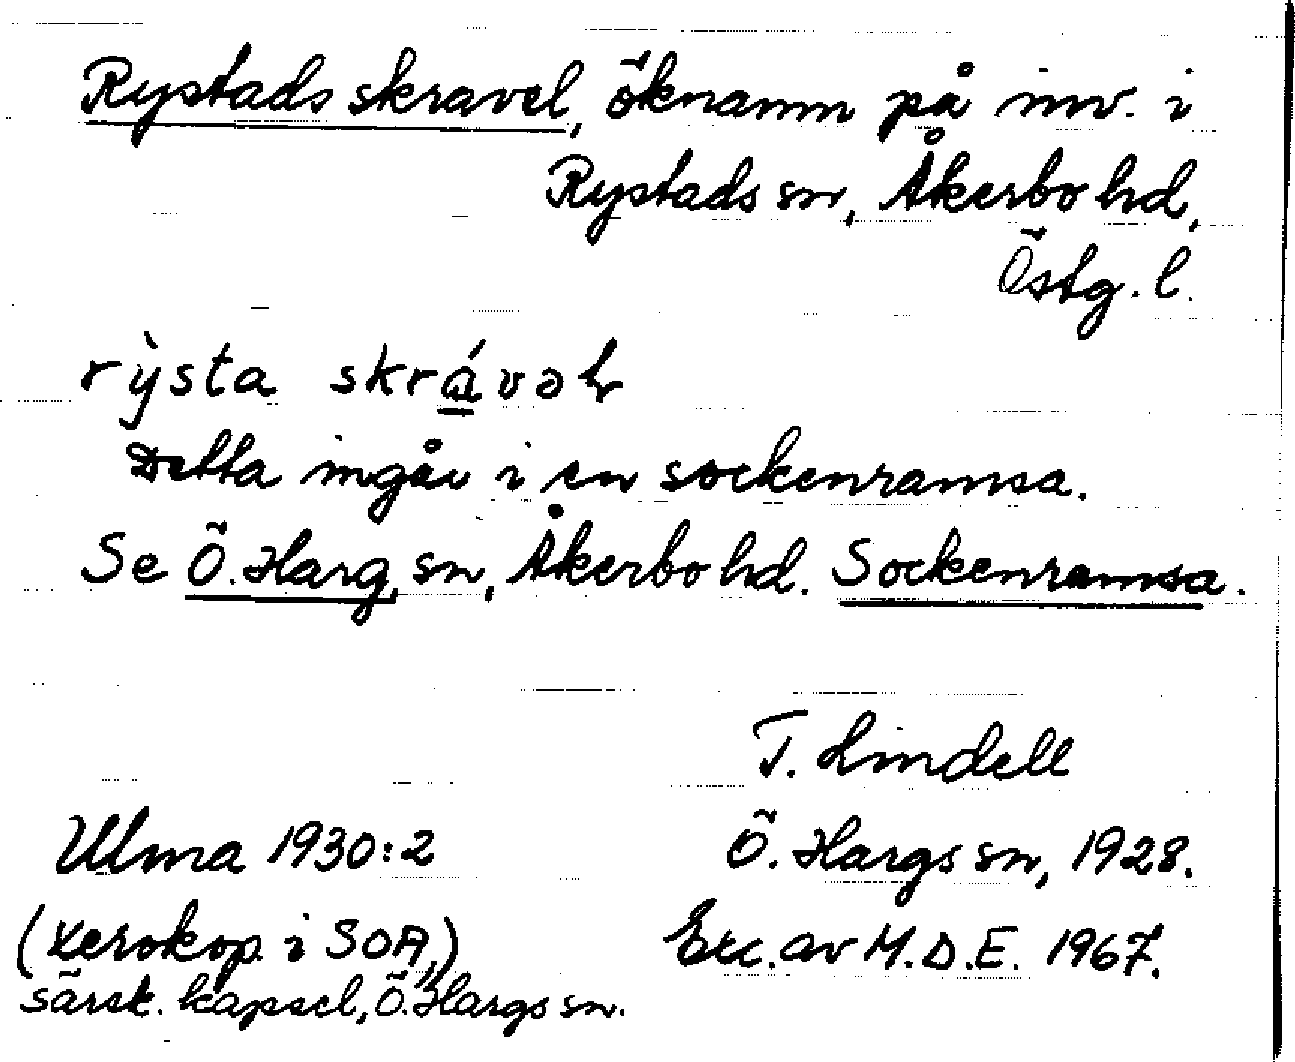 Rystads skravel, öknamn på inv. i
Rystads sn, Åkerbo hd,
Östg. l.
rỳsta skrávəl
Detta ingår i en sockenramsa.
Se Ö. Harg, sn, Åkerbo hd. Sockenramsa.
T. Lindell
Ulma 1930:2
Ö. Hargs sn, 1928.
(xerokop. i SOA,)
Exc. av M.D.E. 1967.
särsk. kapsel, Ö. Hargs sn.